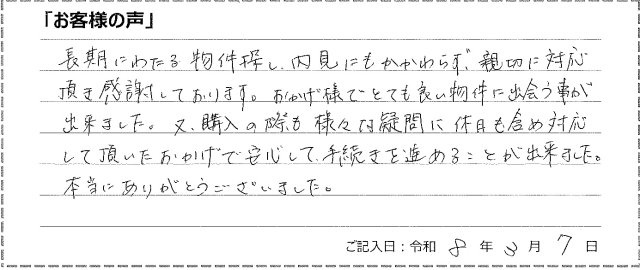 「お客様の声」
長期にわたる物件探し、内見にもかかわらず、親切に対応
頂き感謝しております。おかげ様でとても良い物件に出会う事が
出来ました。又、購入の際も様々な疑問に休日も含め対応
して頂いたおかげで安心して、手続きを進めることが出来ました。
本当にありがとうございました。
ご記入日：令和 8 年 3 月 7 日